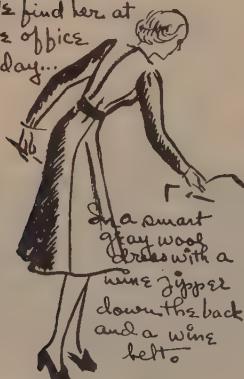 e find her at
e office
day...
In a smart
gray wool
dress with a
wine zipper
down the back
and a wine
belt.